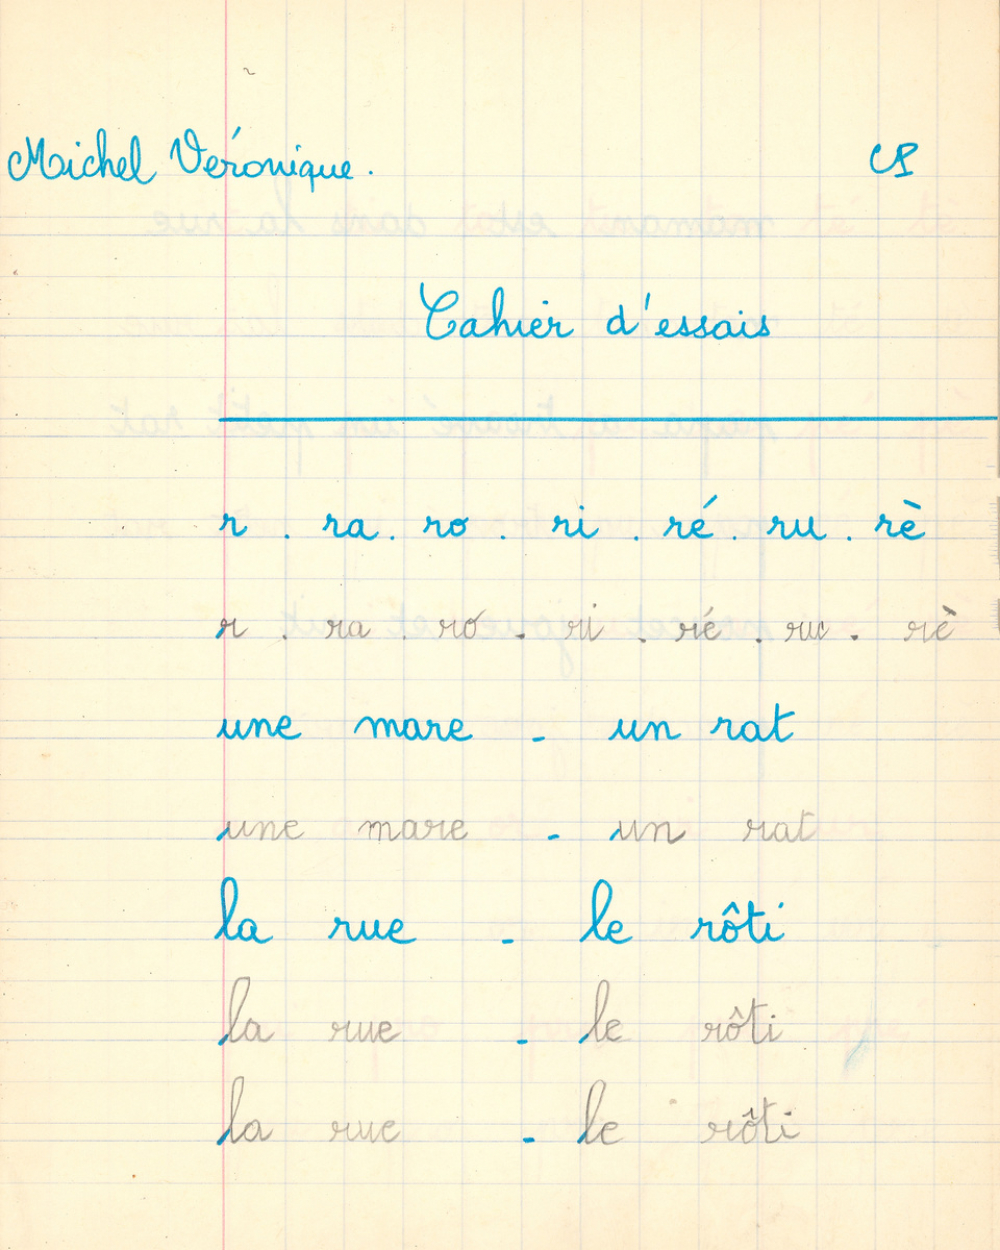 Michel Véronique. CP
Cahier d'essais
r . ra . ro . ri . ré . ru . rè
r . ra . ro . ri . ré . ru . rè
une mare - un rat
une mare - un rat
la rue - le rôti
la rue - le rôti
la rue - le rôti